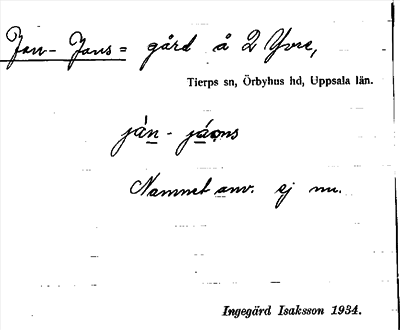 Jan-Jans = gård å 2 Yvre,
Tierps sn, Örbyhus hd, Uppsala län.
jàn - jáọns
Namnet anv. ej nu.
Ingegärd Isaksson 1934.